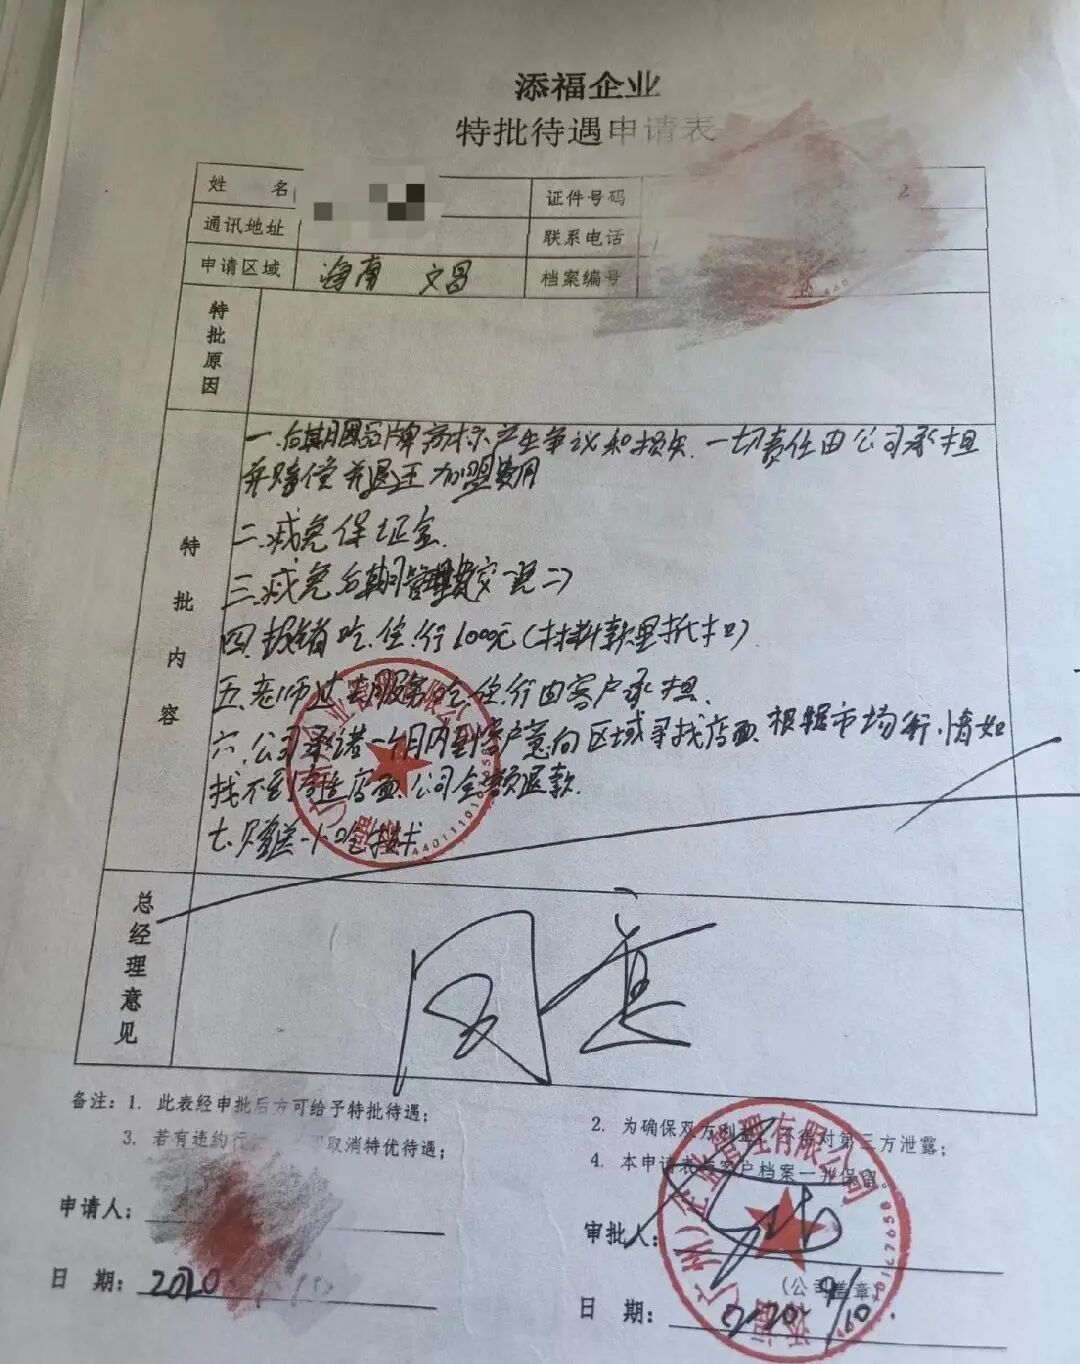 添福企业
特批待遇申请表
姓 名
证件号码 2
通讯地址
联系电话
申请区域 海南 文昌
档案编号
特批原因
特批内容
一.后期因品牌商标产生争议和损失.一切责任由公司承担
并赔偿并退还加盟费用
二.减免保证金.
三.减免后期管理费
四.报销吃.住.行1000元
五.老师过去服务吃.住.行由客户承担.
六.公司承诺一个月内到客户意向区域寻找店面.根据市场行.情如
找不到合适店面.公司全额退款.
七.赠送一个小吃技术
总经理意见
同意
备注：1. 此表经申批后方可给予特批待遇；
2. 为确保双方利益，不得对第三方泄露；
3. 若有违约行 取消特优待遇；
4. 本申请表与客户档案一并保留。
申请人：
审批人：
（公司盖章）
日 期：2020
日 期：2020.9/10.
添福（广州）企业管理有限公司